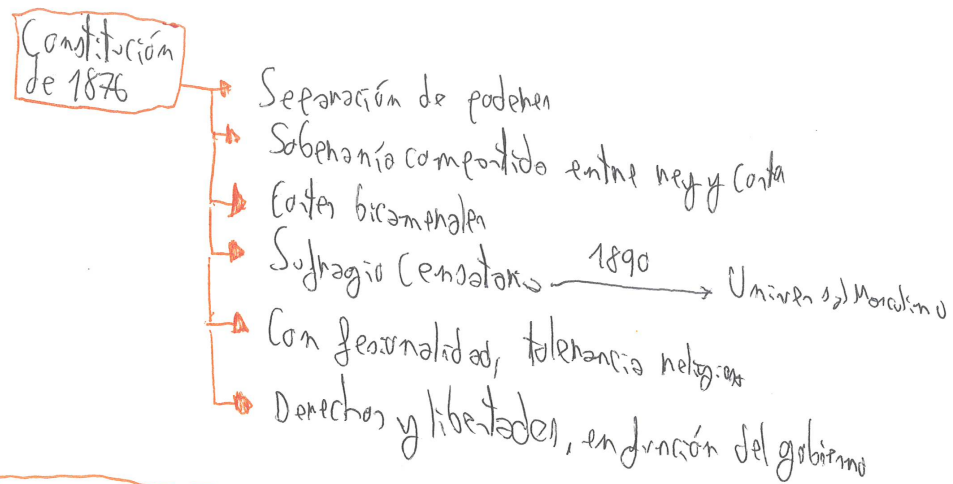 Constitución
de 1876
Separación de poderes
Soberanía compartida entre rey y Corte
Cortes bicamerales
Sufragio Censatario 1890 Universal Masculino
Confesionalidad, tolerancia religiosa
Derechos y libertades, en función del gobierno